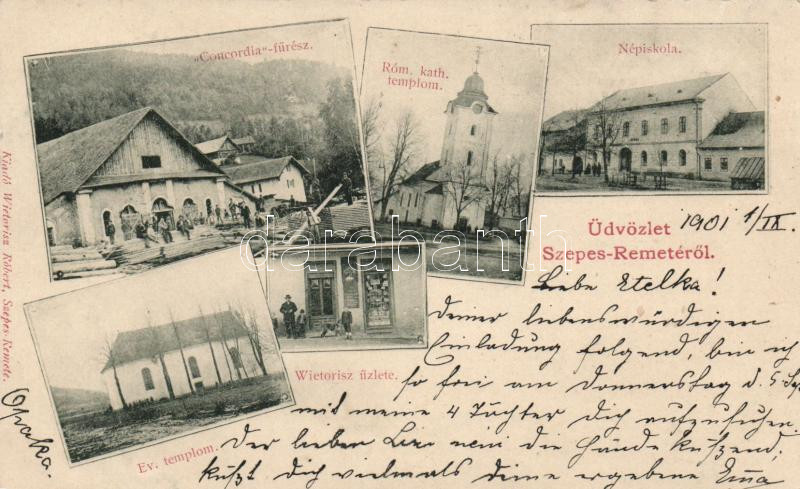 „Concordia“-fűrész.
Róm. kath.
templom.
Népiskola.
Üdvözlet
Szepes-Remetéről.
1901 1/IX
Liebe Etelka!
Deiner liebenswürdigen
Einladung folgend, bin ich
so frei am Donnerstag d. 5 Sep
mit meine 4 Töchter Dich aufzusuchen.
Der lieben die Hände küssend,
küßt dich vielmals deine ergebene Ema
Wietorisz üzlete.
Ev. templom.
Kiadó Wietorisz Róbert, Szepes-Remete.
darabanth